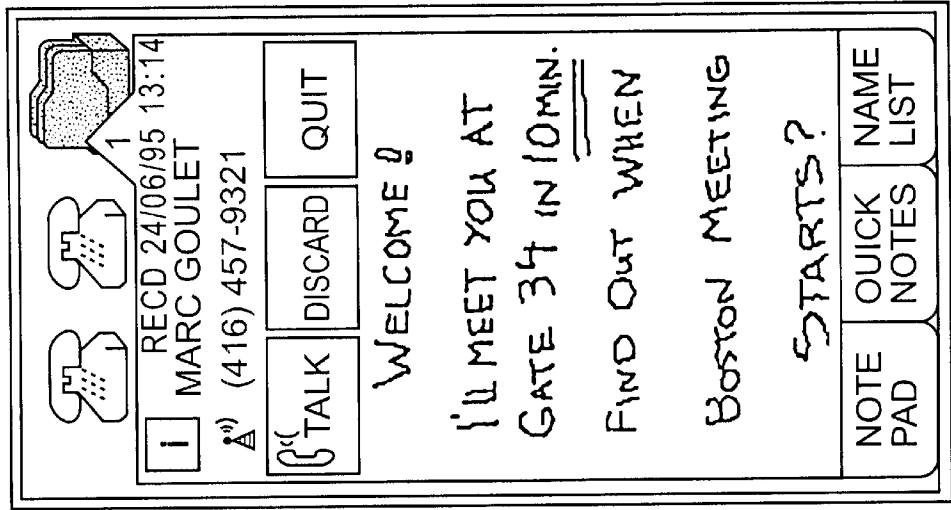 1
RECD 24/06/95 13:14
i MARC GOULET
(416) 457-9321
TALK DISCARD QUIT
WELCOME!
I'll MEET YOU AT
GATE 34 IN 10MIN.
FIND OUT WHEN
BOSTON MEETING
STARTS?
NOTE PAD
OUICK NOTES
NAME LIST